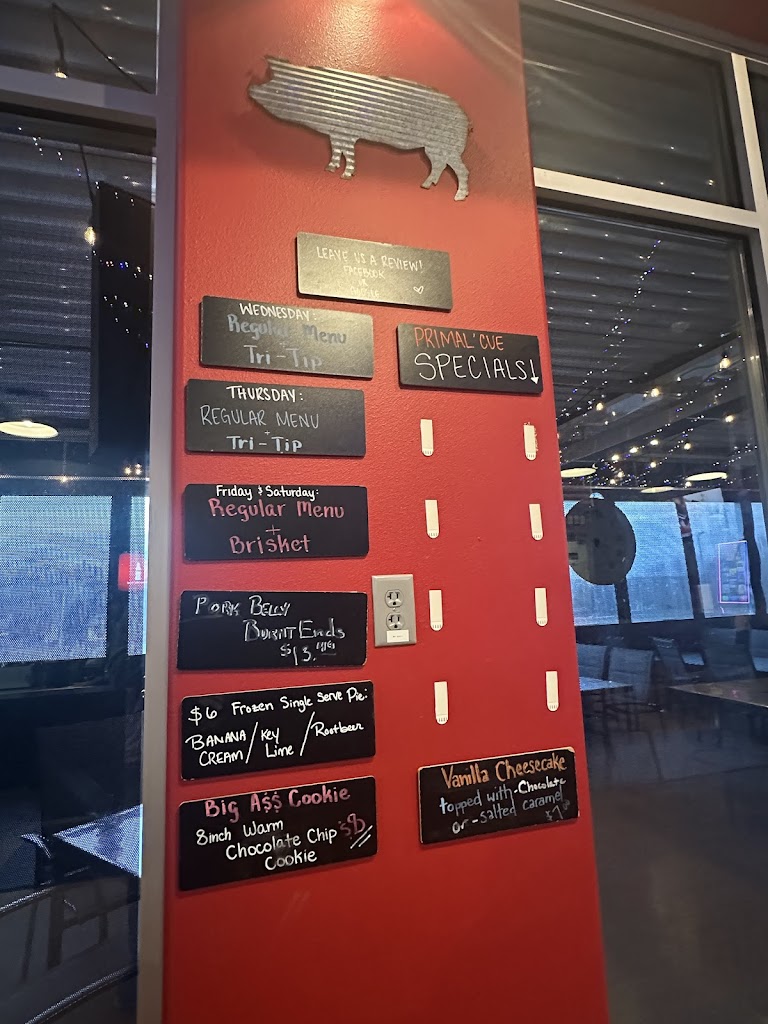 LEAVE US A REVIEW!
FACEBOOK
OR
GOOGLE
WEDNESDAY:
Regular Menu
+
Tri-Tip
PRIMAL'CUE
SPECIALS!
THURSDAY:
REGULAR MENU
+
Tri-Tip
Friday & Saturday:
Regular Menu
+
Brisket
PORK BELLY
BURNT Ends
$13.
$6 Frozen Single Serve Pie:
BANANA CREAM / Key Lime / Rootbeer
Big A$$ Cookie
8inch Warm
Chocolate Chip
Cookie
Vanilla Cheesecake
topped with -Chocolate
or -salted caramel